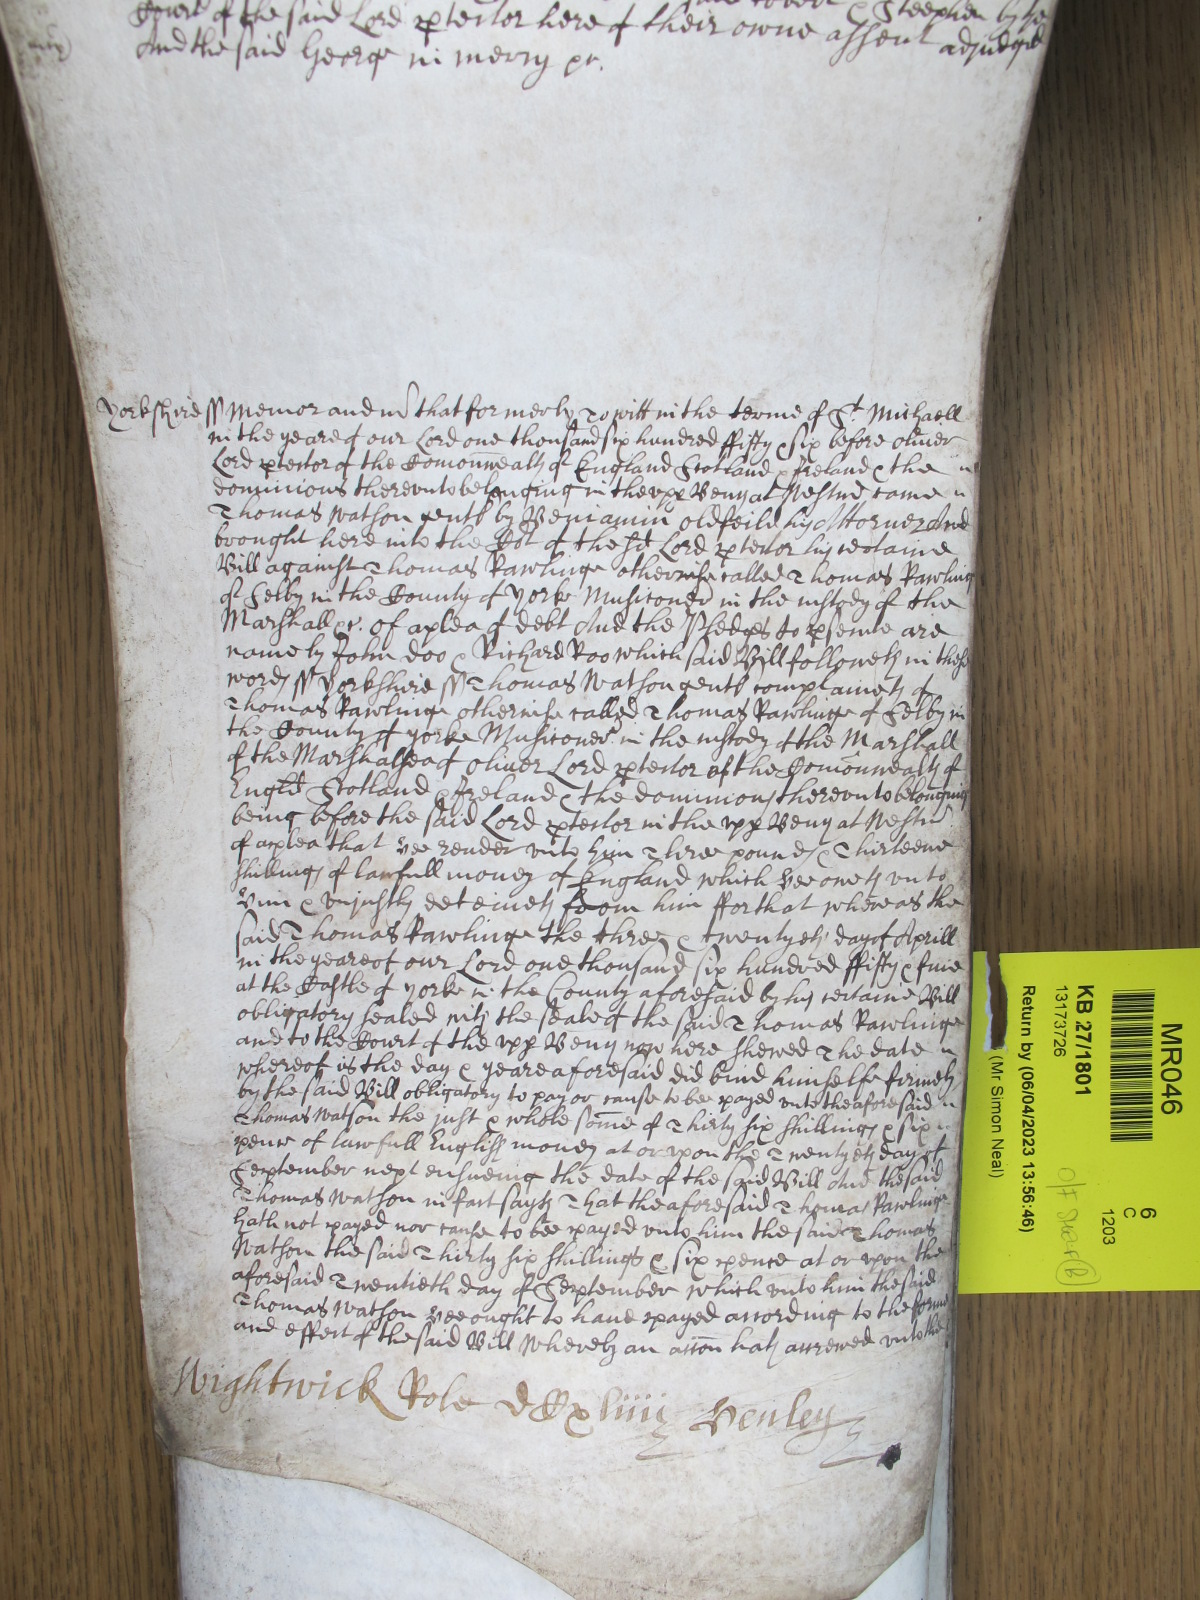 Court of the said Lord ptector here of their owne assent adjudged
And the said George in mercy &c.
Yorkshire ss Memorandum that formerly to witt in the terme of St Michaell
in the yeare of our Lord one thousand six hundred ffifty & six before Oliver
Lord ptector of the Comonwealth of England Scotland & Ireland & the
dominions thereunto belonging in the upp Bench at Westmr came
Thomas Watson gentl by Beniamin Oldfeild his Attorney And
brought here into the Cot of the sd Lord ptector his certaine
Bill against Thomas Rawlinge otherwise called Thomas Rawling
of Selby in the County of Yorke Musitoner in the custody of the
Marshall &c. of a plea of debt And the Pledges to psecute are
namely John Doo & Richard Roo which said Bill followeth in these
words ss Yorkshire ss Thomas Watson gentl complaineth of
Thomas Rawlinge otherwise called Thomas Rawlinge of Selby in
the County of Yorke Musitoner in the custody of the Marshall
of the Marshalsea of Oliver Lord ptector of the Comonwealth of
Engld Scotland & Ireland & the dominions thereunto belonging
being before the said Lord ptector in the upp Bench at Westmr
of a plea that hee render unto him Three pounds & Thirteene
shillings of lawfull money of England which hee oweth unto
him & unjustly deteineth from him ffor that whereas the
said Thomas Rawlinge the three & twentyeth day of Aprill
in the yeare of our Lord one thousand six hundred ffifty & five
at the Castle of Yorke in the County aforesaid by his certaine Bill
obligatory sealed with the seale of the said Thomas Rawlinge
and to the Court of the upp Bench now here shewed The date
whereof is the day & yeare aforesaid did bind himselfe firmely
by the said Bill obligatory to pay or cause to bee payed unto the aforesaid
Thomas Watson the just & whole some of Thirty six shillings & six
pence of lawfull English money at or upon the Twentyeth day of
September next ensueing the date of the said Bill And the said
Thomas Watson in fact sayth That the aforesaid Thomas Rawlinge
hath not payed nor cause to bee payed unto him the said Thomas
Watson the said Thirty six shillings & six pence at or upon the
aforesaid Twentieth day of September which unto him the said
Thomas Watson hee ought to have payed according to the forme
and effect of the said Bill Whereby an accon hath accrewed unto the
Wightwick Role dCCxliiij Henley
MR046
6
C
1203
KB 27/1801
13173726
Return by (06/04/2023 13:56:46)
(Mr Simon Neal)